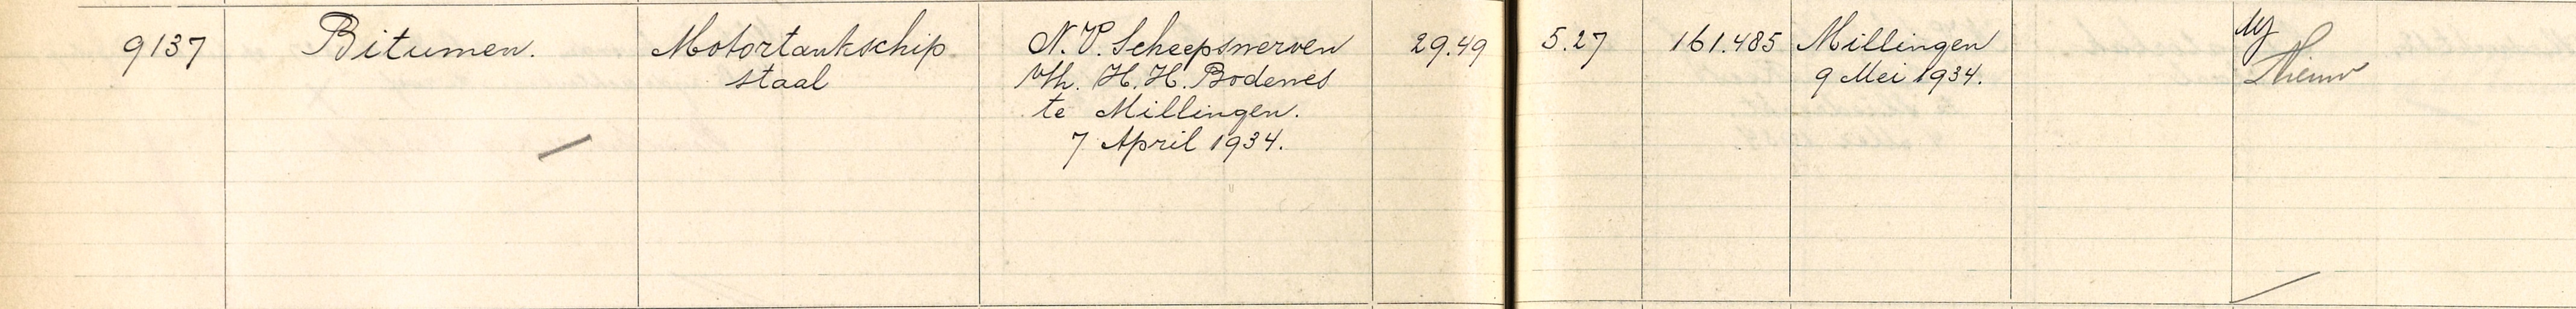 9137 Bitumen. Motortankschip N.V. Scheepswerven 29.49 5.27 161.485 Millingen
staal v/h. H.H. Bodewes 9 Mei 1934. Nieuw
te Millingen.
7 April 1934.